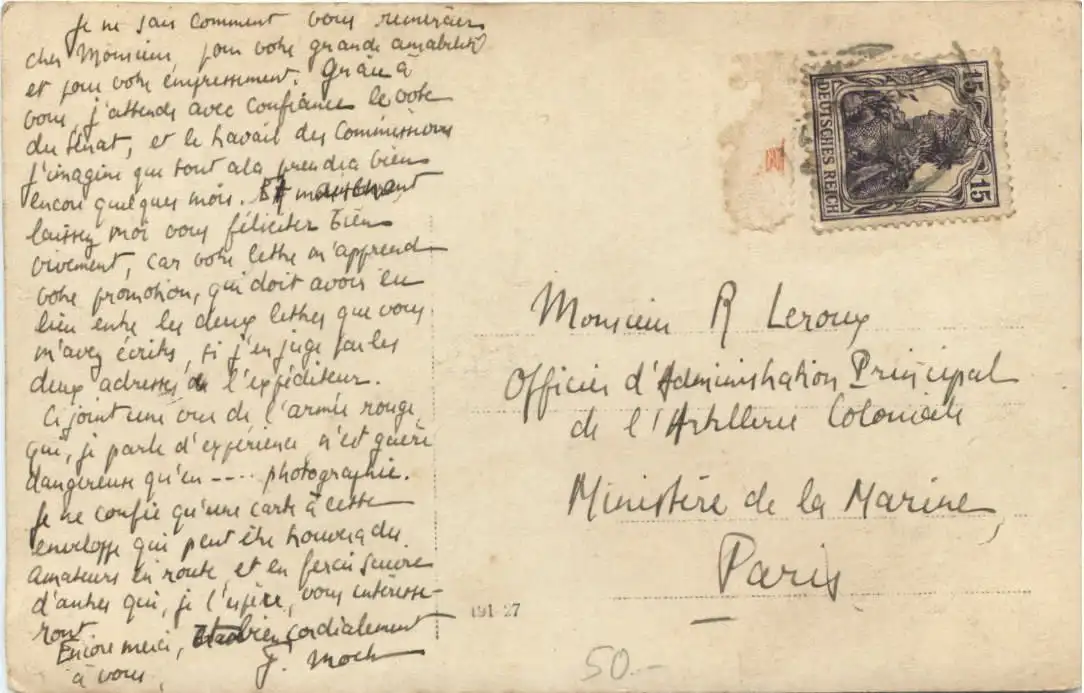 Je ne sais comment vous remercier
cher Monsieur, pour votre grande amabilité
et pour votre empressement. Grâce à
vous, j'attends avec confiance le vote
du Sénat, et le travail des Commissions
J'imagine que tout cela prendra bien
encore quelques mois. Et maintenant
laissez moi vous féliciter bien
vivement, car votre lettre m'apprend
votre promotion, qui doit avoir eu
lieu entre les deux lettres que vous
m'avez écrites, si j'en juge par les
deux adresses de l'expéditeur.
Ci joint une vue de l'armée rouge,
qui, je parle d'expérience, n'est guère
dangereuse qu'en ---- photographie.
Je ne confie qu'une carte à cette
enveloppe qui peut être trouvera des
amateurs en route, et en ferai suivre
d'autres qui, je l'espère, vous intéresse-
ront.
Encore merci, bien cordialement
à vous,
J. Moch
15
DEUTSCHES REICH
15
Monsieur R Leroux
Officier d'Administration Principal
de l'Artillerie Coloniale
Ministère de la Marine,
Paris
191-27
50.-